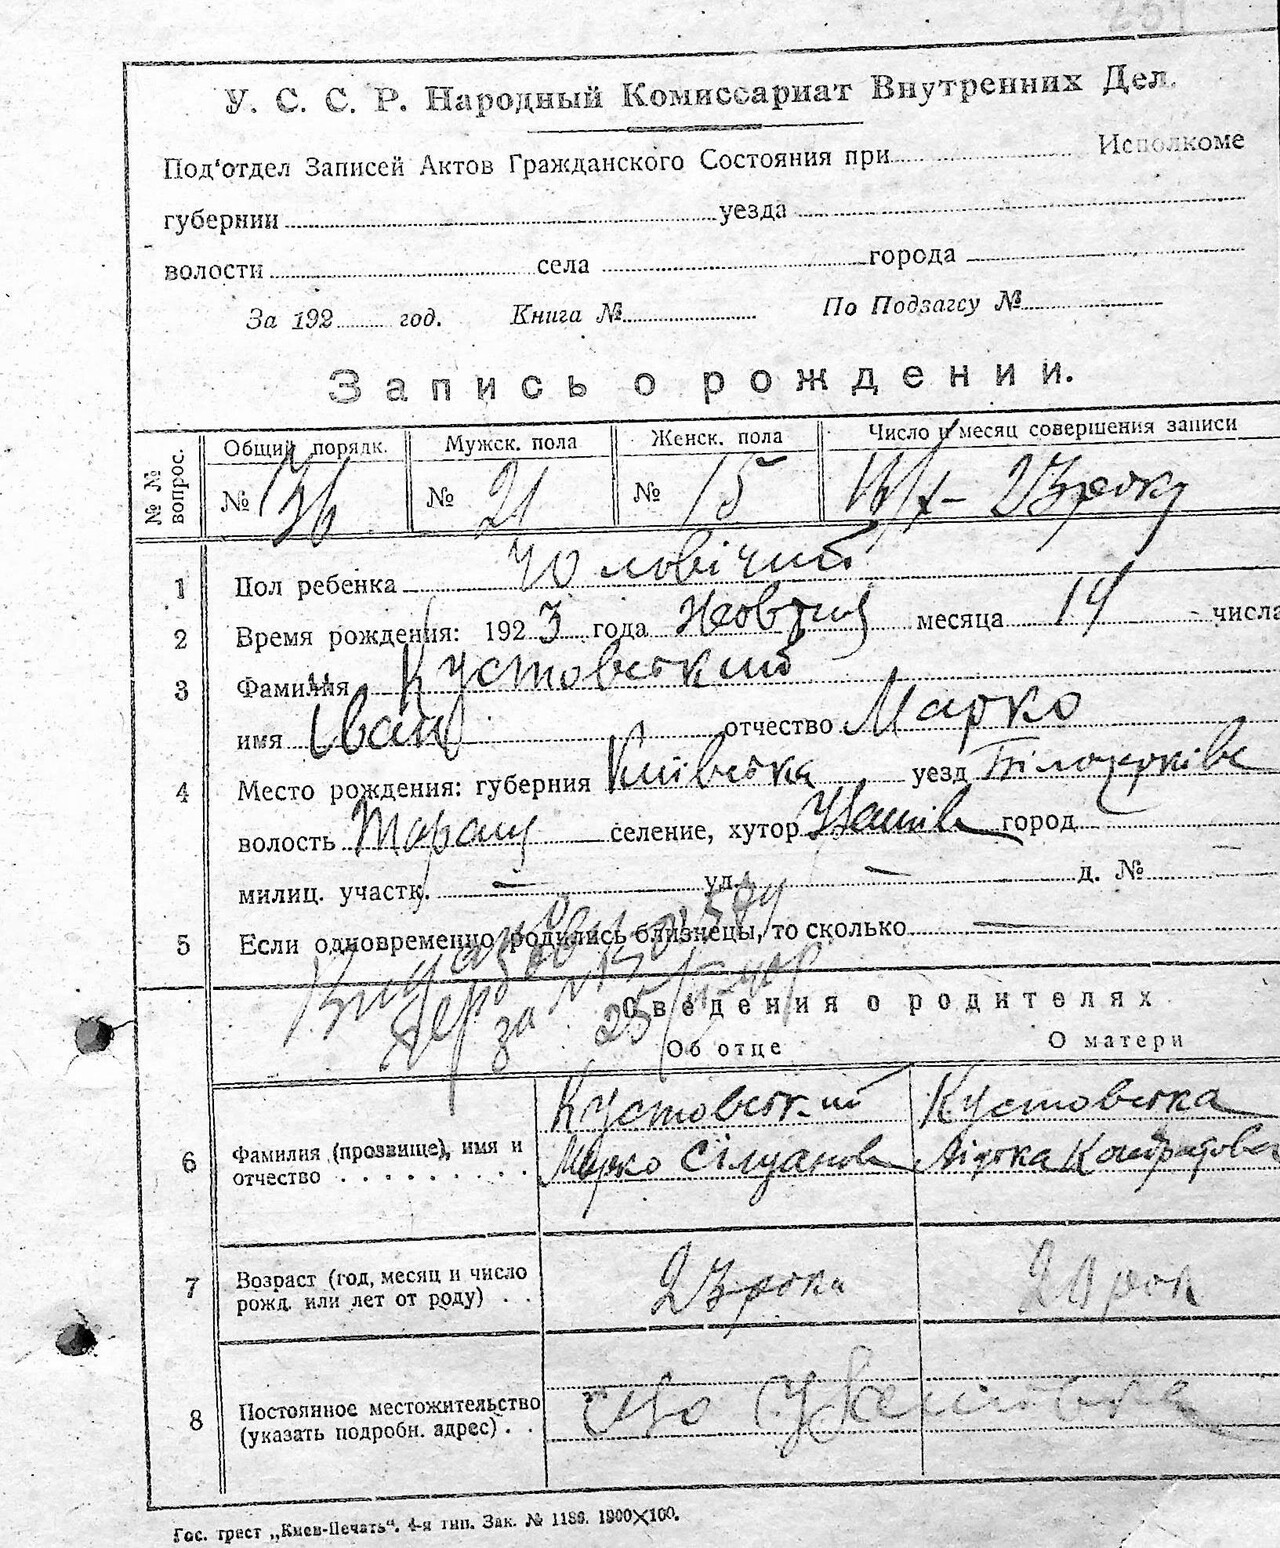 251
У. С. С. Р. Народный Комиссариат Внутренних Дел.
Под'отдел Записей Актов Гражданского Состояния при Исполкоме
губернии уезда
волости села города
За 192 год. Книга № По Подзагсу №
Запись о рождении.
№ № вопрос. Общий порядк. Мужск. пола Женск. пола Число и месяц совершения записи
№ 36 № 21 № 15 16/X – 23 року
1 Пол ребенка Чоловічий
2 Время рождения: 1923 года Жовтня месяца 14 числа
3 Фамилия Кустовський
имя Іван отчество Марко
4 Место рождения: губерния Київська уезд Білоцерківс
волость Таращ селение, хутор город
милиц. участк. — ул. — д. № —
5 Если одновременно родились близнецы, то сколько —
за 25
Сведения о родителях
Об отце О матери
6 Фамилия (прозвище), имя и отчество Кустовський Кустовська
Марко Сілуанов Кондратова
7 Возраст (год, месяц и число рожд. или лет от роду) 23 роки 20 рок
8 Постоянное местожительство (указать подробн. адрес)
Гос. трест „Киев-Печать“. 4-я тип. Зак. № 1186. 1900×100.